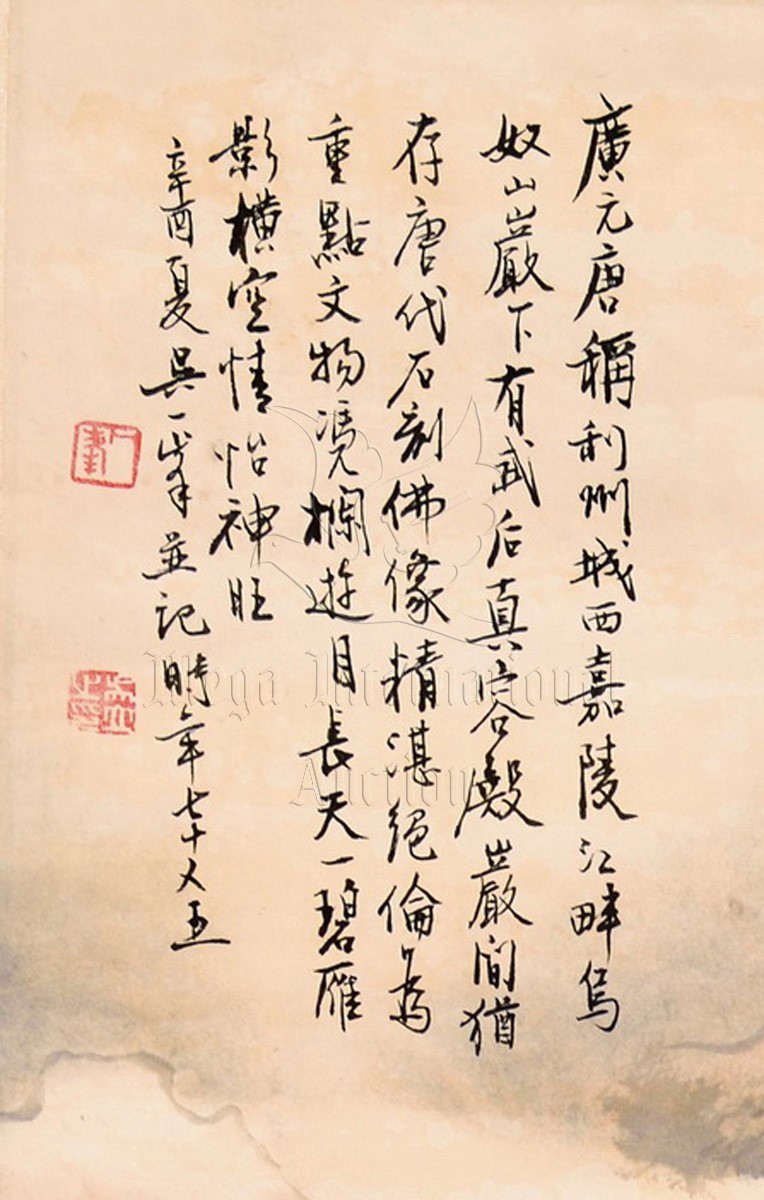 廣元唐稱利州城西嘉陵江畔烏
奴山巖下有武后真容殿巖間猶
存唐代石刻佛像精湛絕倫為
重點文物凴欄遊目長天一碧雁
影橫空情怡神旺
辛酉夏吳一峯並記時年七十又五
Mega International
Auction